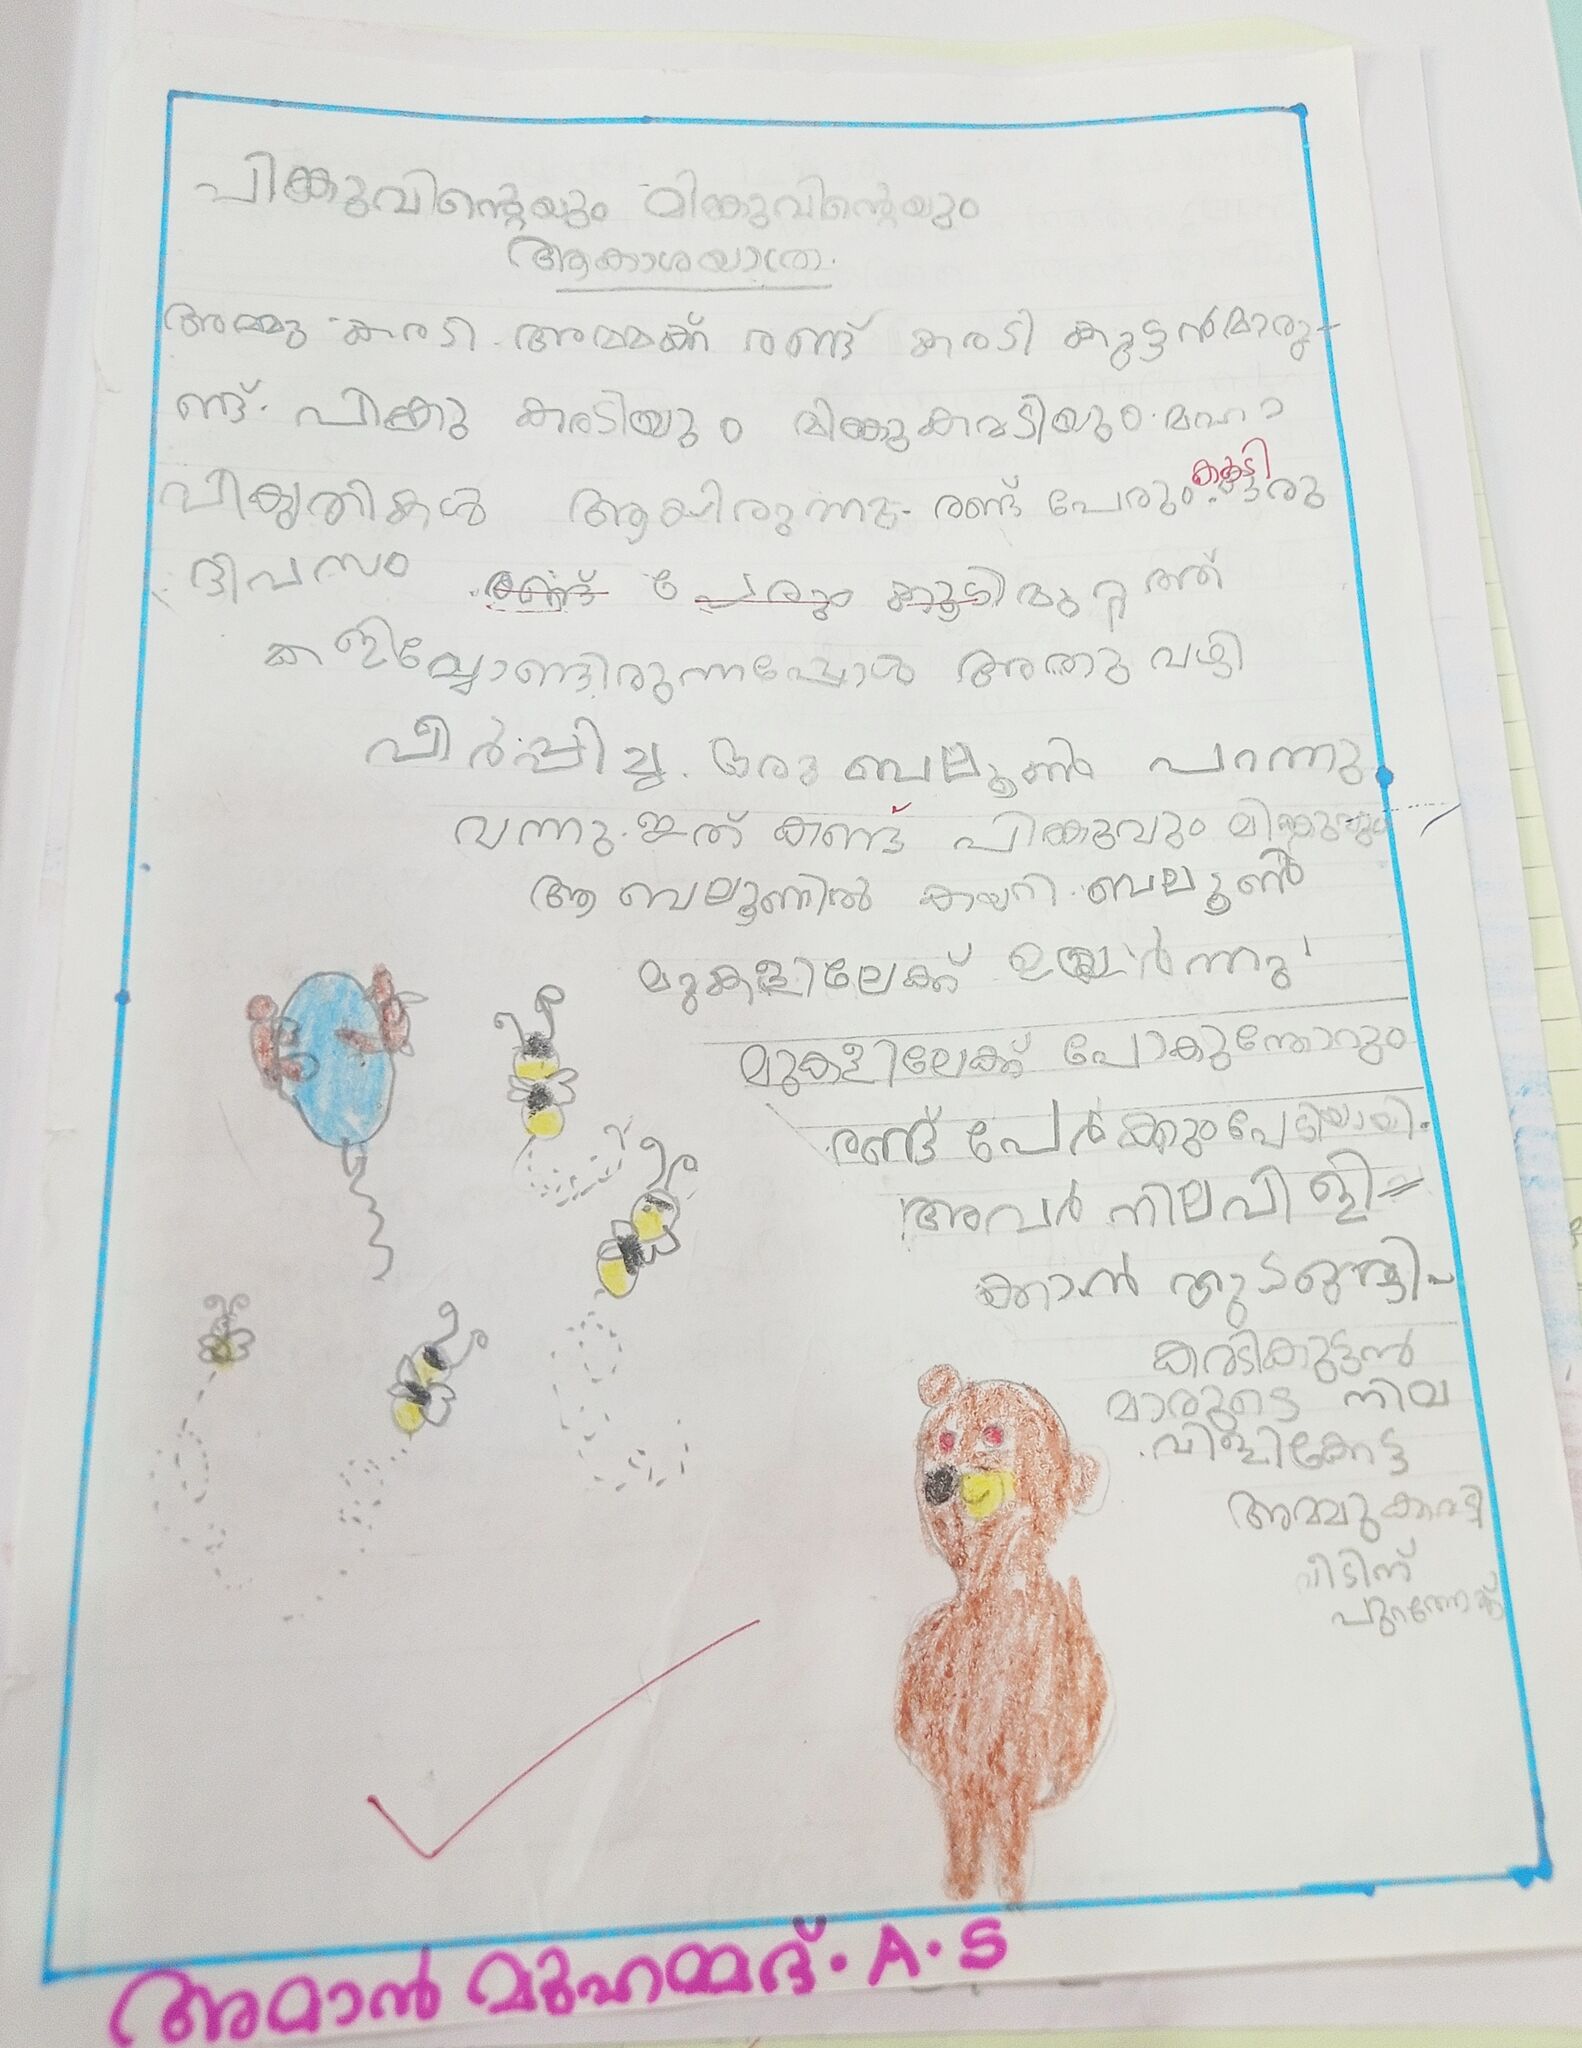 പിങ്കുവിന്റെയും മിങ്കുവിന്റെയും
ആകാശയാത്ര.
അമ്മു കരടി. അമ്മക്ക് രണ്ട് കരടി കുട്ടൻമാരു-
ണ്ട്. പിങ്കു കരടിയും മിങ്കുകരടിയും. മഹാ
വികൃതികൾ ആയിരുന്നു. രണ്ട് പേരും. ഒരു
കൂടി
ദിവസം രണ്ട് പേരും കൂടി മുറ്റത്ത്
കളിച്ചോണ്ടിരുന്നപ്പോൾ അതു വഴി
വീർപ്പിച്ച. ഒരു ബലൂൺ പറന്നു
വന്നു. ഇത് കണ്ട് പിങ്കുവും മിങ്കുവും
ആ ബലൂണിൽ കയറി. ബലൂൺ
മുകളിലേക്ക് ഉയർന്നു.
മുകളിലേക്ക് പോകുന്തോറും
രണ്ട് പേർക്കും പേടിയായി.
അവർ നിലവിളി-
ക്കാൻ തുടങ്ങി.
കരടികുട്ടൻ
മാരുടെ നില
വിളികേട്ട
അമ്മുകരടി
വീടിന്
പുറത്തേക്ക്
അമാൻ മുഹമ്മദ്. A. S